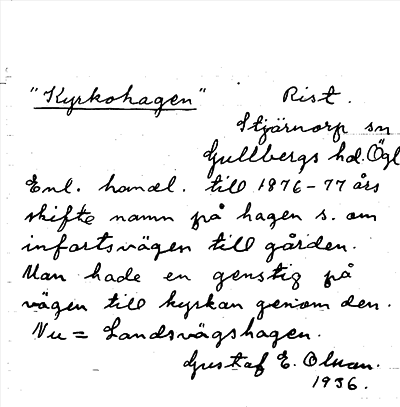 "Kyrkohagen" Rist.
Stjärnorp sn
Gullbergs hd. Ögl
Enl. handl. till 1876-77 års
skifte namn på hagen s. om
infartsvägen till gården.
Man hade en genstig på
vägen till kyrkan genom den.
Nu = Landsvägshagen.
Gustaf E. Olsson.
1936.